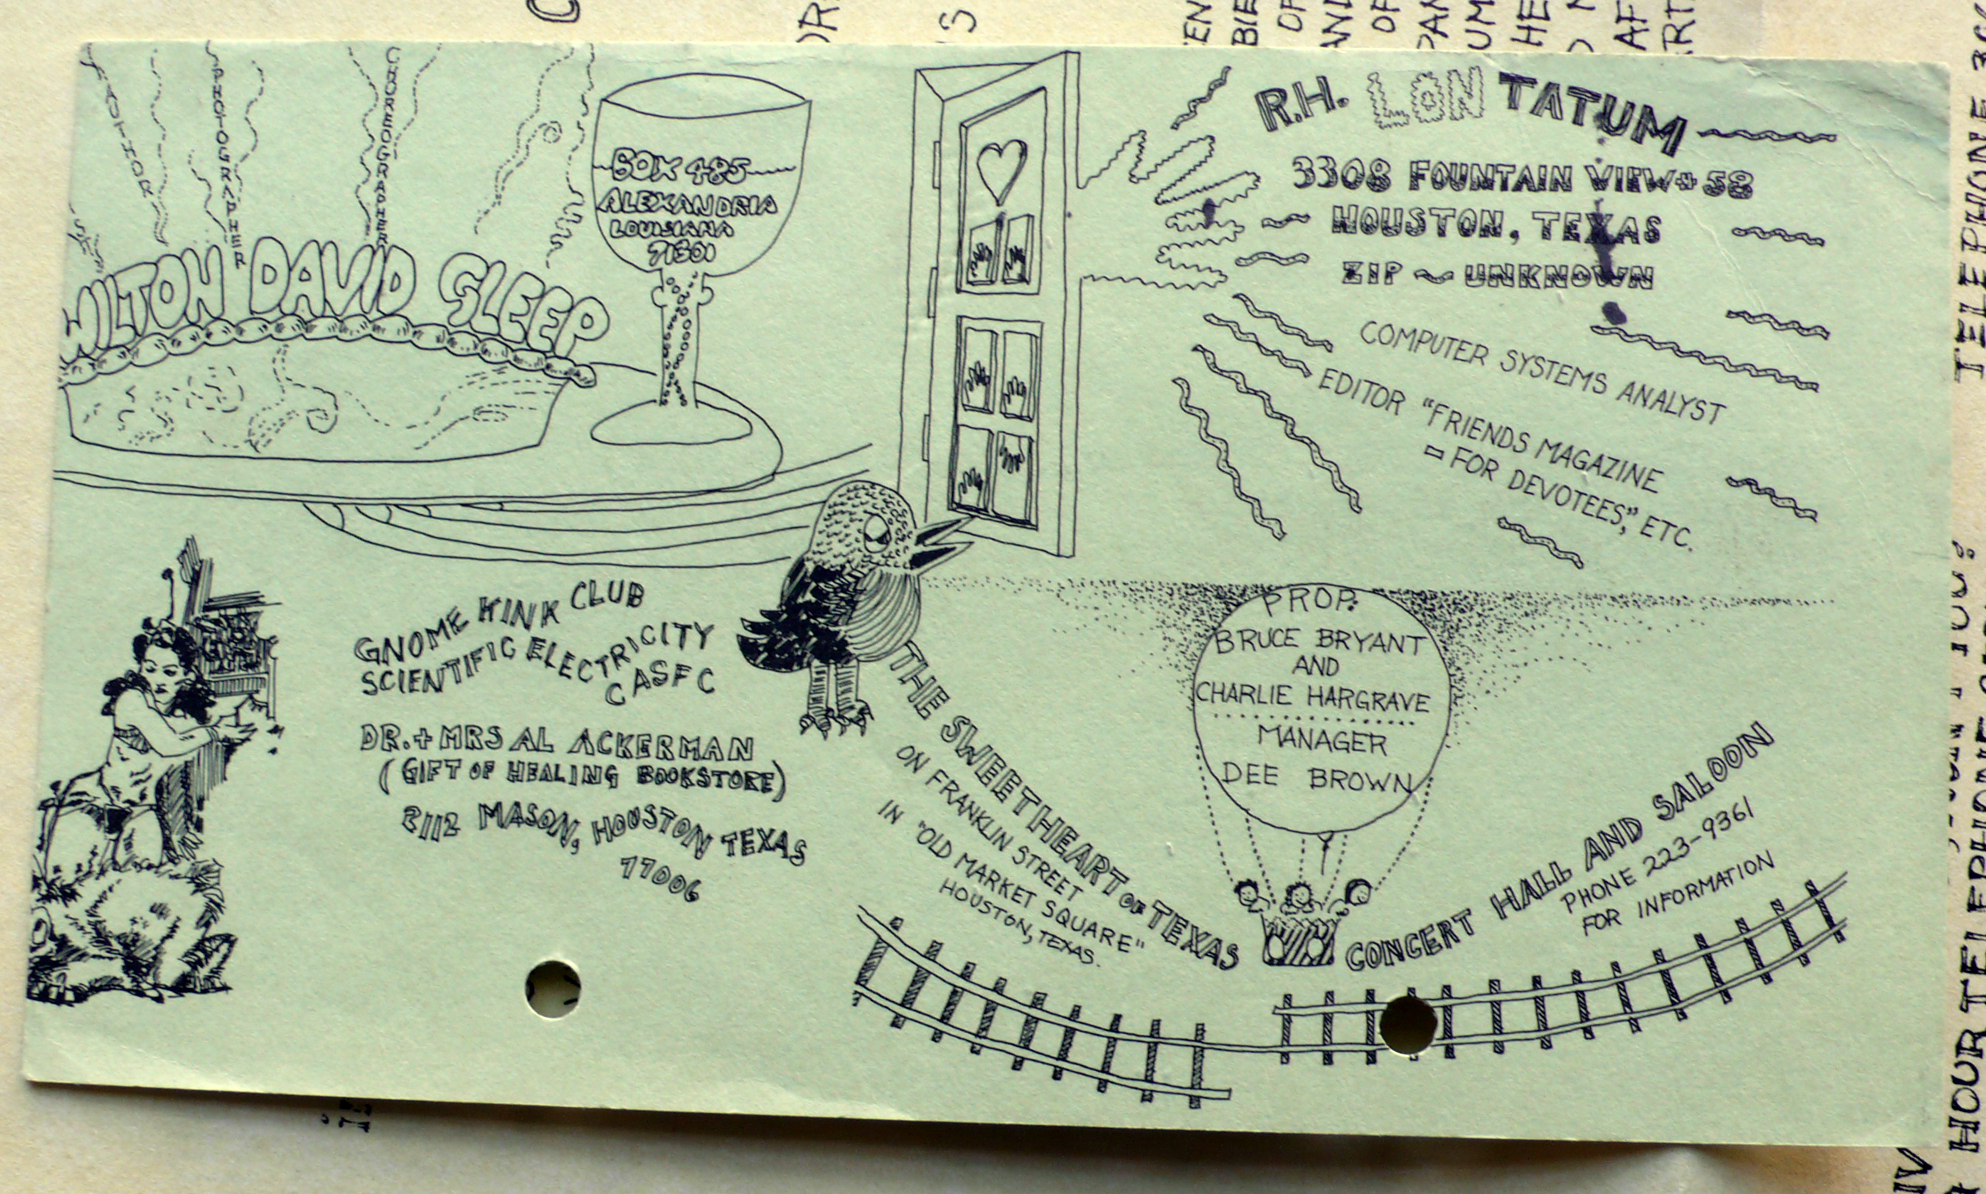 AUTHOR
PHOTOGRAPHER
CHOREOGRAPHER
WILTON DAVID SLEEP
BOX 485
ALEXANDRIA
LOUISIANA
71301
R.H. LON TATUM
3308 FOUNTAIN VIEW #58
HOUSTON, TEXAS
ZIP ~ UNKNOWN
COMPUTER SYSTEMS ANALYST
EDITOR "FRIENDS MAGAZINE
FOR DEVOTEES," ETC.
GNOME KINK CLUB
SCIENTIFIC ELECTRICITY
CASFC
DR. + MRS AL ACKERMAN
(GIFT OF HEALING BOOKSTORE)
2112 MASON, HOUSTON TEXAS
77006
PROP.
BRUCE BRYANT
AND
CHARLIE HARGRAVE
MANAGER
DEE BROWN
THE SWEETHEART OF TEXAS
CONCERT HALL AND SALOON
ON FRANKLIN STREET
IN "OLD MARKET SQUARE"
HOUSTON, TEXAS.
PHONE 223-9361
FOR INFORMATION
HOUR TELEPHONE
TELEPHONE